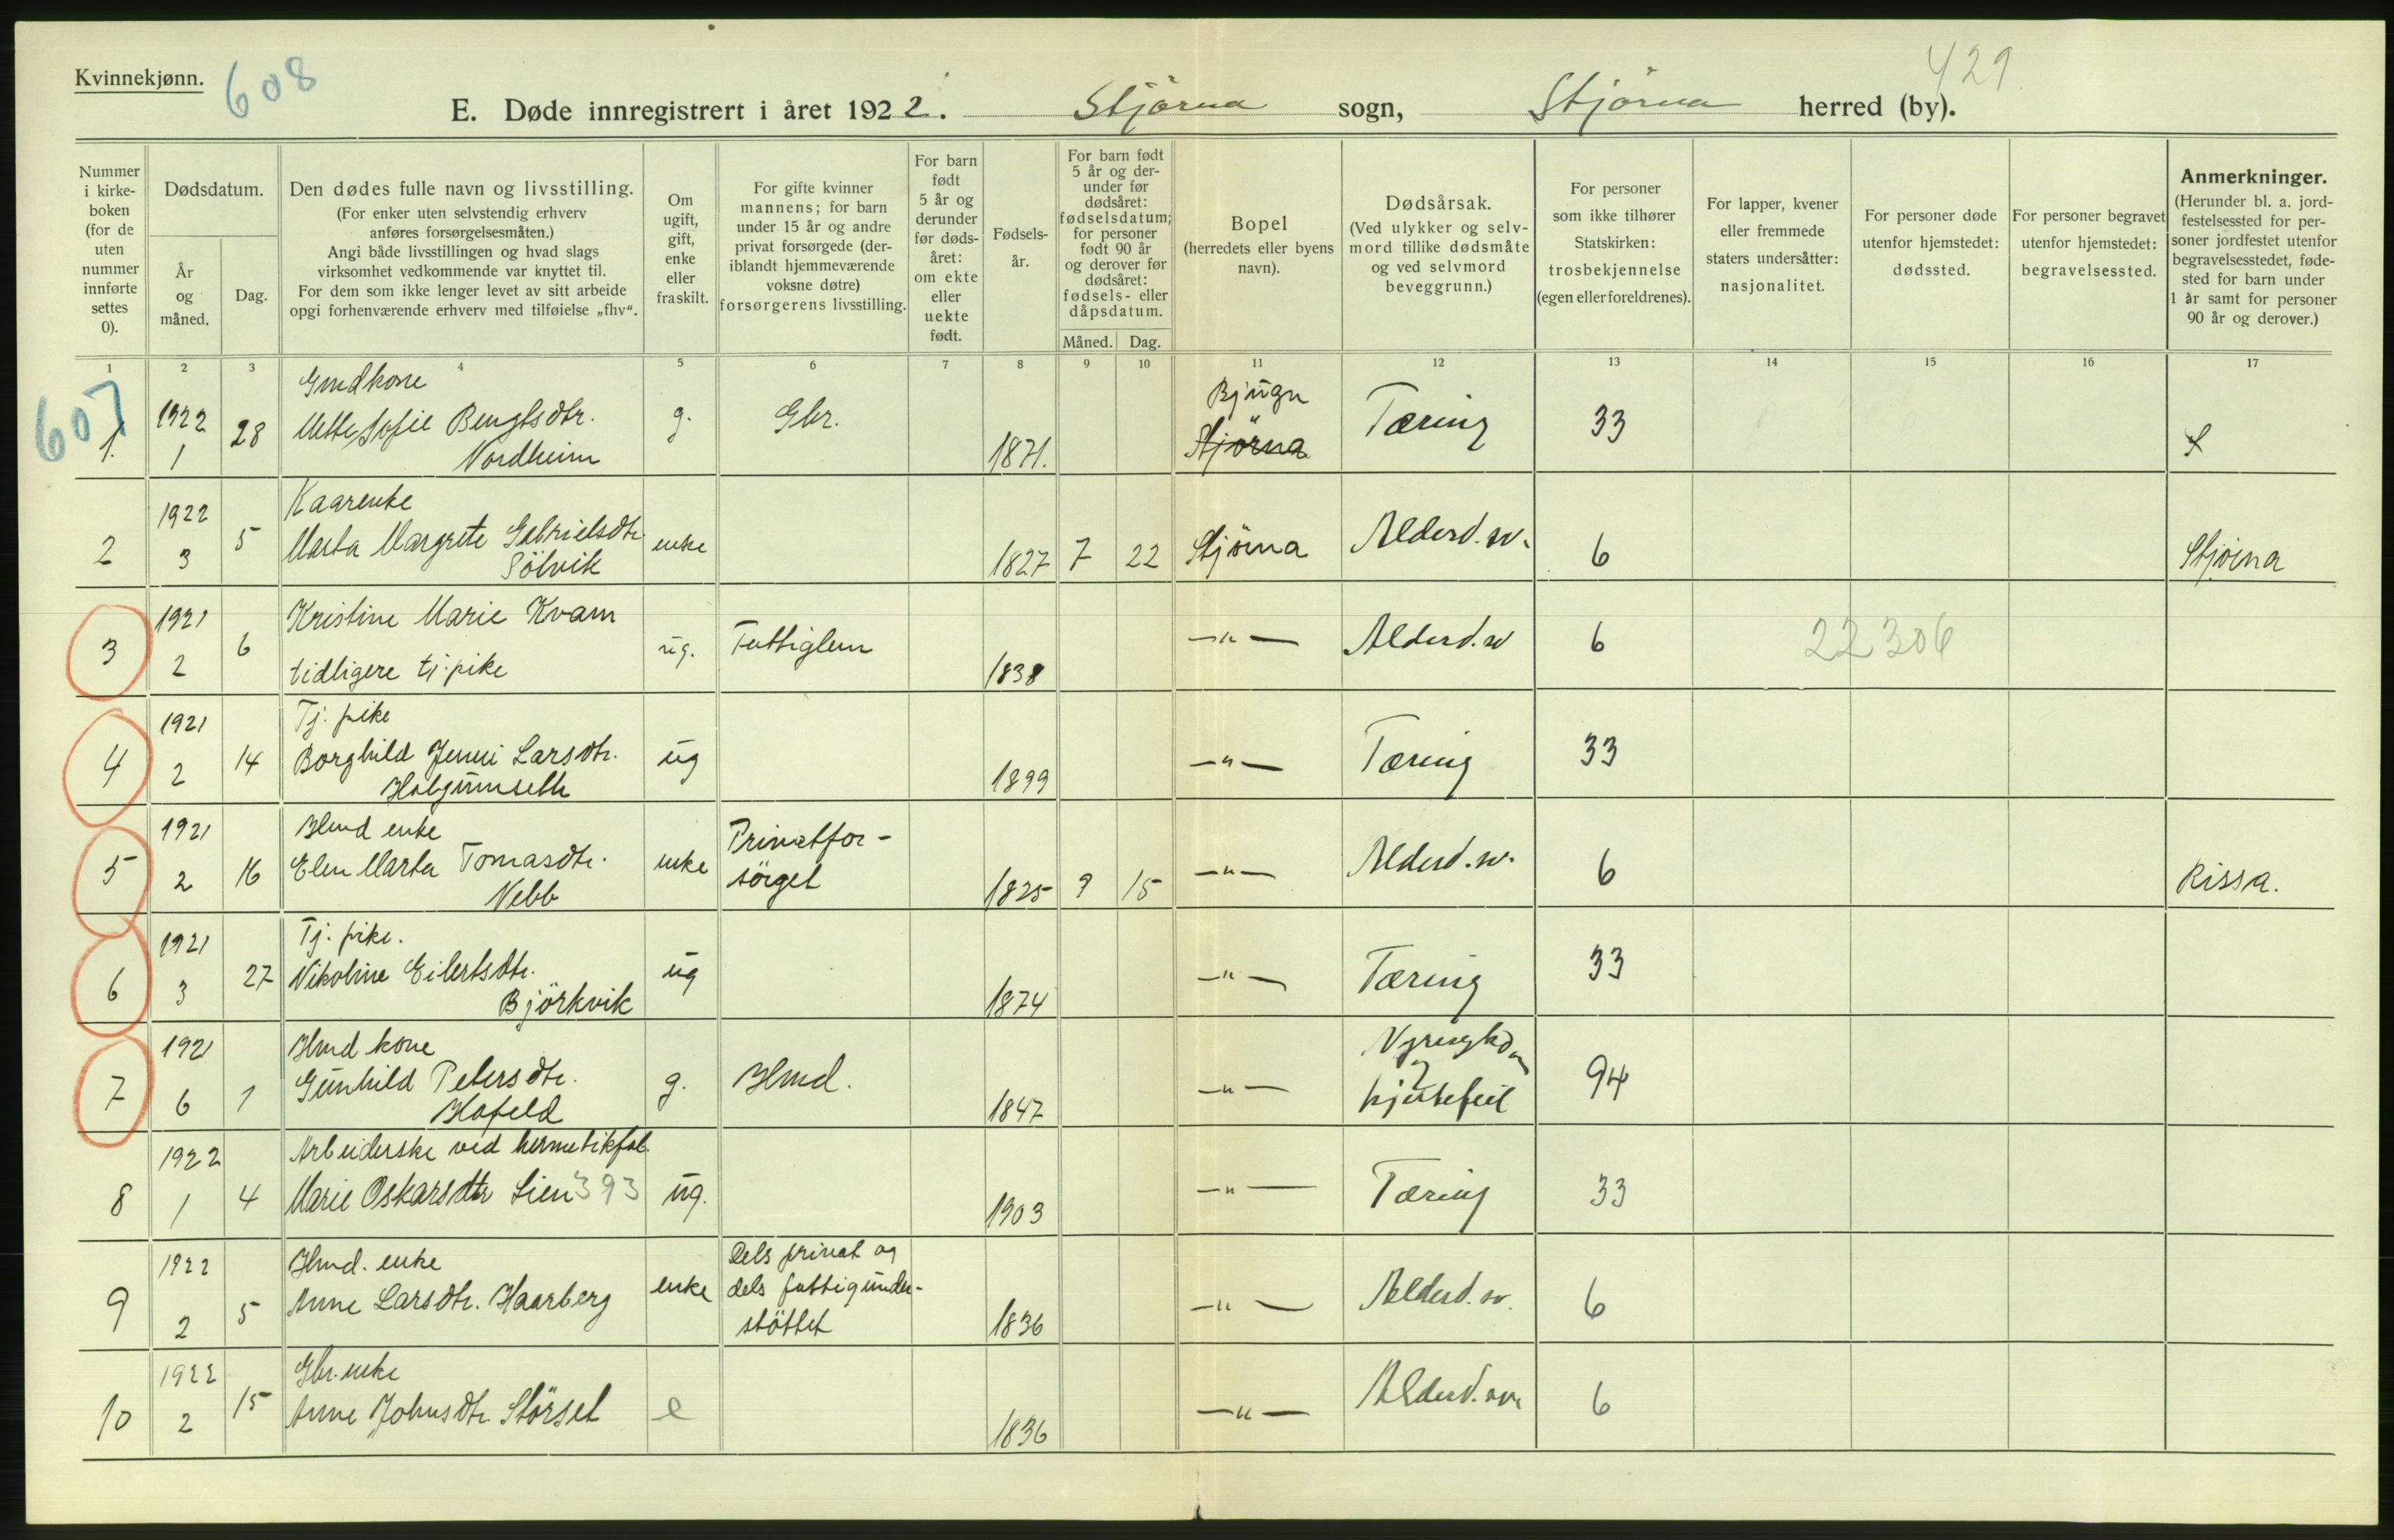 Kvinnekjønn.
608
429
E. Døde innregistrert i året 1922. Stjørna sogn, Stjørna herred (by).
Nummer i kirkeboken (for de uten nummer innførte settes 0).
Dødsdatum.
År og måned.
Dag.
Den dødes fulle navn og livsstilling.
(For enker uten selvstendig erhverv anføres forsørgelsesmåten.)
Angi både livsstillingen og hvad slags virksomhet vedkommende var knyttet til.
For dem som ikke lenger levet av sitt arbeide opgi forhenværende erhverv med tilføielse „fhv“.
Om ugift, gift, enke eller fraskilt.
For gifte kvinner mannens; for barn under 15 år og andre privat forsørgede (deriblandt hjemmeværende voksne døtre) forsørgerens livsstilling.
For barn født 5 år og derunder før dødsåret: om ekte eller uekte født.
Fødselsår.
For barn født 5 år og derunder før dødsåret: fødselsdatum; for personer født 90 år og derover før dødsåret: fødsels- eller dåpsdatum.
Måned. Dag.
Bopel
(herredets eller byens navn).
Dødsårsak.
(Ved ulykker og selvmord tillike dødsmåte og ved selvmord beveggrunn.)
For personer som ikke tilhører Statskirken: trosbekjennelse (egen eller foreldrenes).
For lapper, kvener eller fremmede staters undersåtter: nasjonalitet.
For personer døde utenfor hjemstedet: dødssted.
For personer begravet utenfor hjemstedet: begravelsessted.
Anmerkninger.
(Herunder bl. a. jordfestelsessted for personer jordfestet utenfor begravelsesstedet, fødested for barn under 1 år samt for personer 90 år og derover.)
1 2 3 4 5 6 7 8 9 10 11 12 13 14 15 16 17
607
Gmdkone Bjugn
1. 1922 1 28 Mette Sofie Bengtsdtr. Nordheim g. Gbr. 1871. Stjørna Tæring 33
Kaarenke
2 1922 3 5 Marta Margrete Gabrielsdtr Sölvik enke 1827 7 22 Stjörna Alderd.sv. 6 Stjörna
3 1921 2 6 Kristine Marie Kvam ug. Fattiglem 1838 —"— Alderd.sv 6 22306
tidligere tj.pike
Tj. pike
4 1921 2 14 Borghild Jenni Larsdtr. ug 1899 —"— Tæring 33
Hmd enke
5 1921 2 16 Elen Marta Tomasdtr. Nebb enke Privatforsörget 1825 9 15 —"— Alderd.sv. 6 Rissa.
Tj. pike.
6 1921 3 27 Nikoline Eilertsdtr. Björkvik ug 1874 —"— Tæring 33
Hmd kone
7 1921 6 1 Gunhild Petersdtr. Hafeld g. Hmd. 1847 —"— hjertefeil 94
Arbeiderske ved hermetikfab.
8 1922 1 4 Marie Oskarsdtr Lien 393 ug. 1903 —"— Tæring 33
Hmd. enke
9 1922 2 5 Anne Larsdtr. Haarberg enke Dels privat og dels fattigunderstöttet 1836 —"— Alderd.sv. 6
Gbr. enke
10 1922 2 15 Anne Johnsdtr. Störset e 1836 —"— Alderd.sv. 6